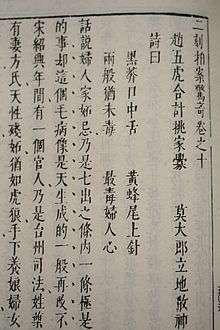 二刻拍案驚奇卷之十
趙五虎合計挑家釁　莫大郎立地散神
詩曰
黑蟒口中舌　黃蜂尾上針
兩般猶未毒　最毒婦人心
話說婦人家妬忌乃是七出之條內一條極是
的事却這個毛病像是天生成的一般再改不
宋紹興年間有一個官人乃是台州司法姓葉
有妻方氏天性殘妬猶如虎狼手下養娘婦女